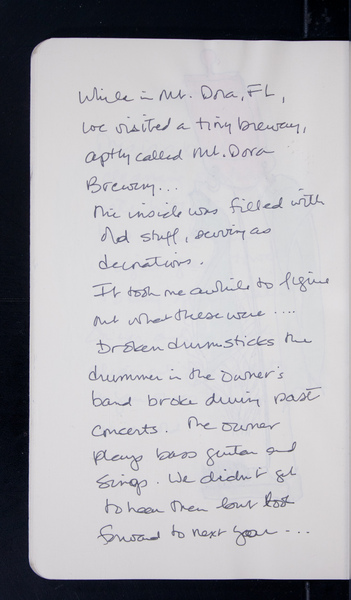 While in Mt. Dora, FL,
we visited a tiny brewery,
aptly called Mt. Dora
Brewery...
The inside was filled with
old stuff, serving as
decorations.
It took me awhile to figure
out what these were ....
Broken drumsticks the
drummer in the owner's
band broke during past
concerts. The owner
plays bass guitar and
sings. We didn't get
to hear them but look
forward to next year ...